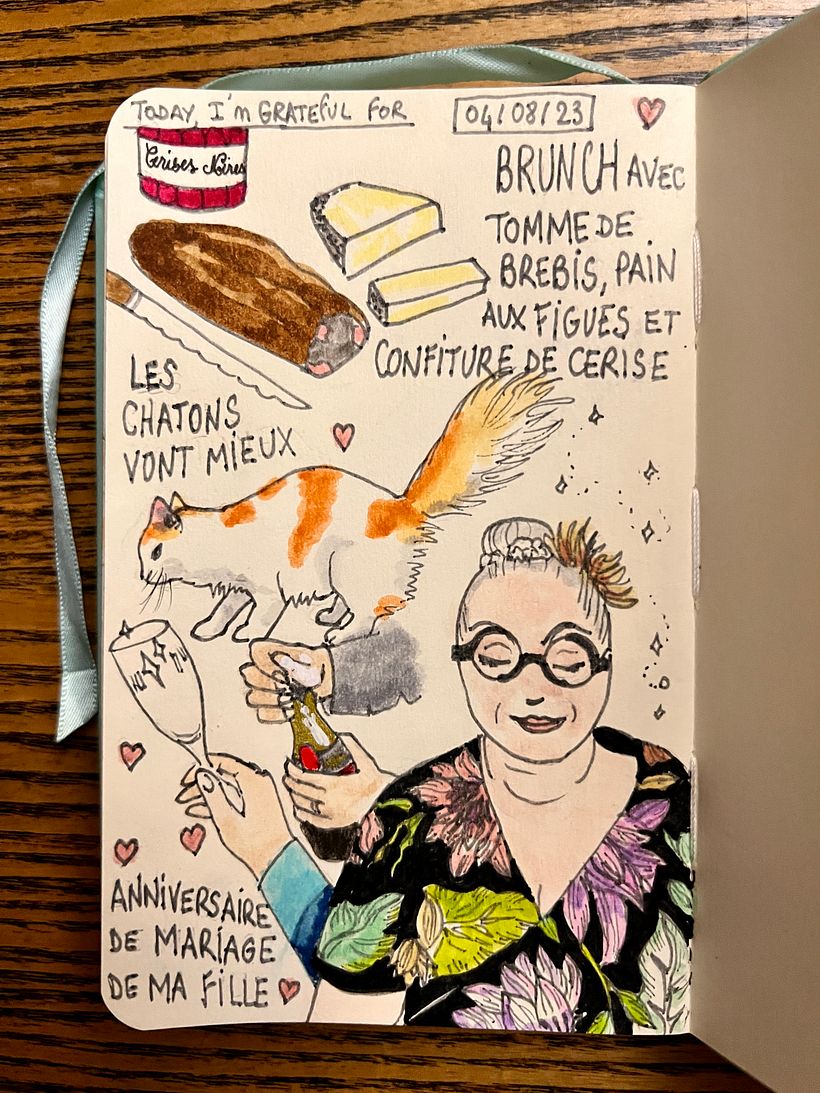 TODAY, I'm GRATEFUL FOR
04/08/23
Cerises Noires
BRUNCH AVEC
TOMME DE
BREBIS, PAIN
AUX FIGUES ET
CONFITURE DE CERISE
LES
CHATONS
VONT MIEUX
ANNIVERSAIRE
DE MARIAGE
DE MA FILLE